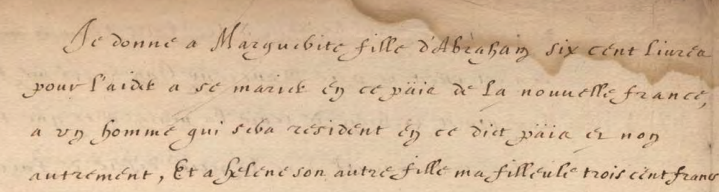 Je donne a Marguerite fille d'Abraham six cent liures
pour l'aider a se marier en ce päis de la nouuelle france,
a vn homme qui sera resident en ce dict päis et non
autrement, Et a helene son autre fille ma filleule trois cent francs